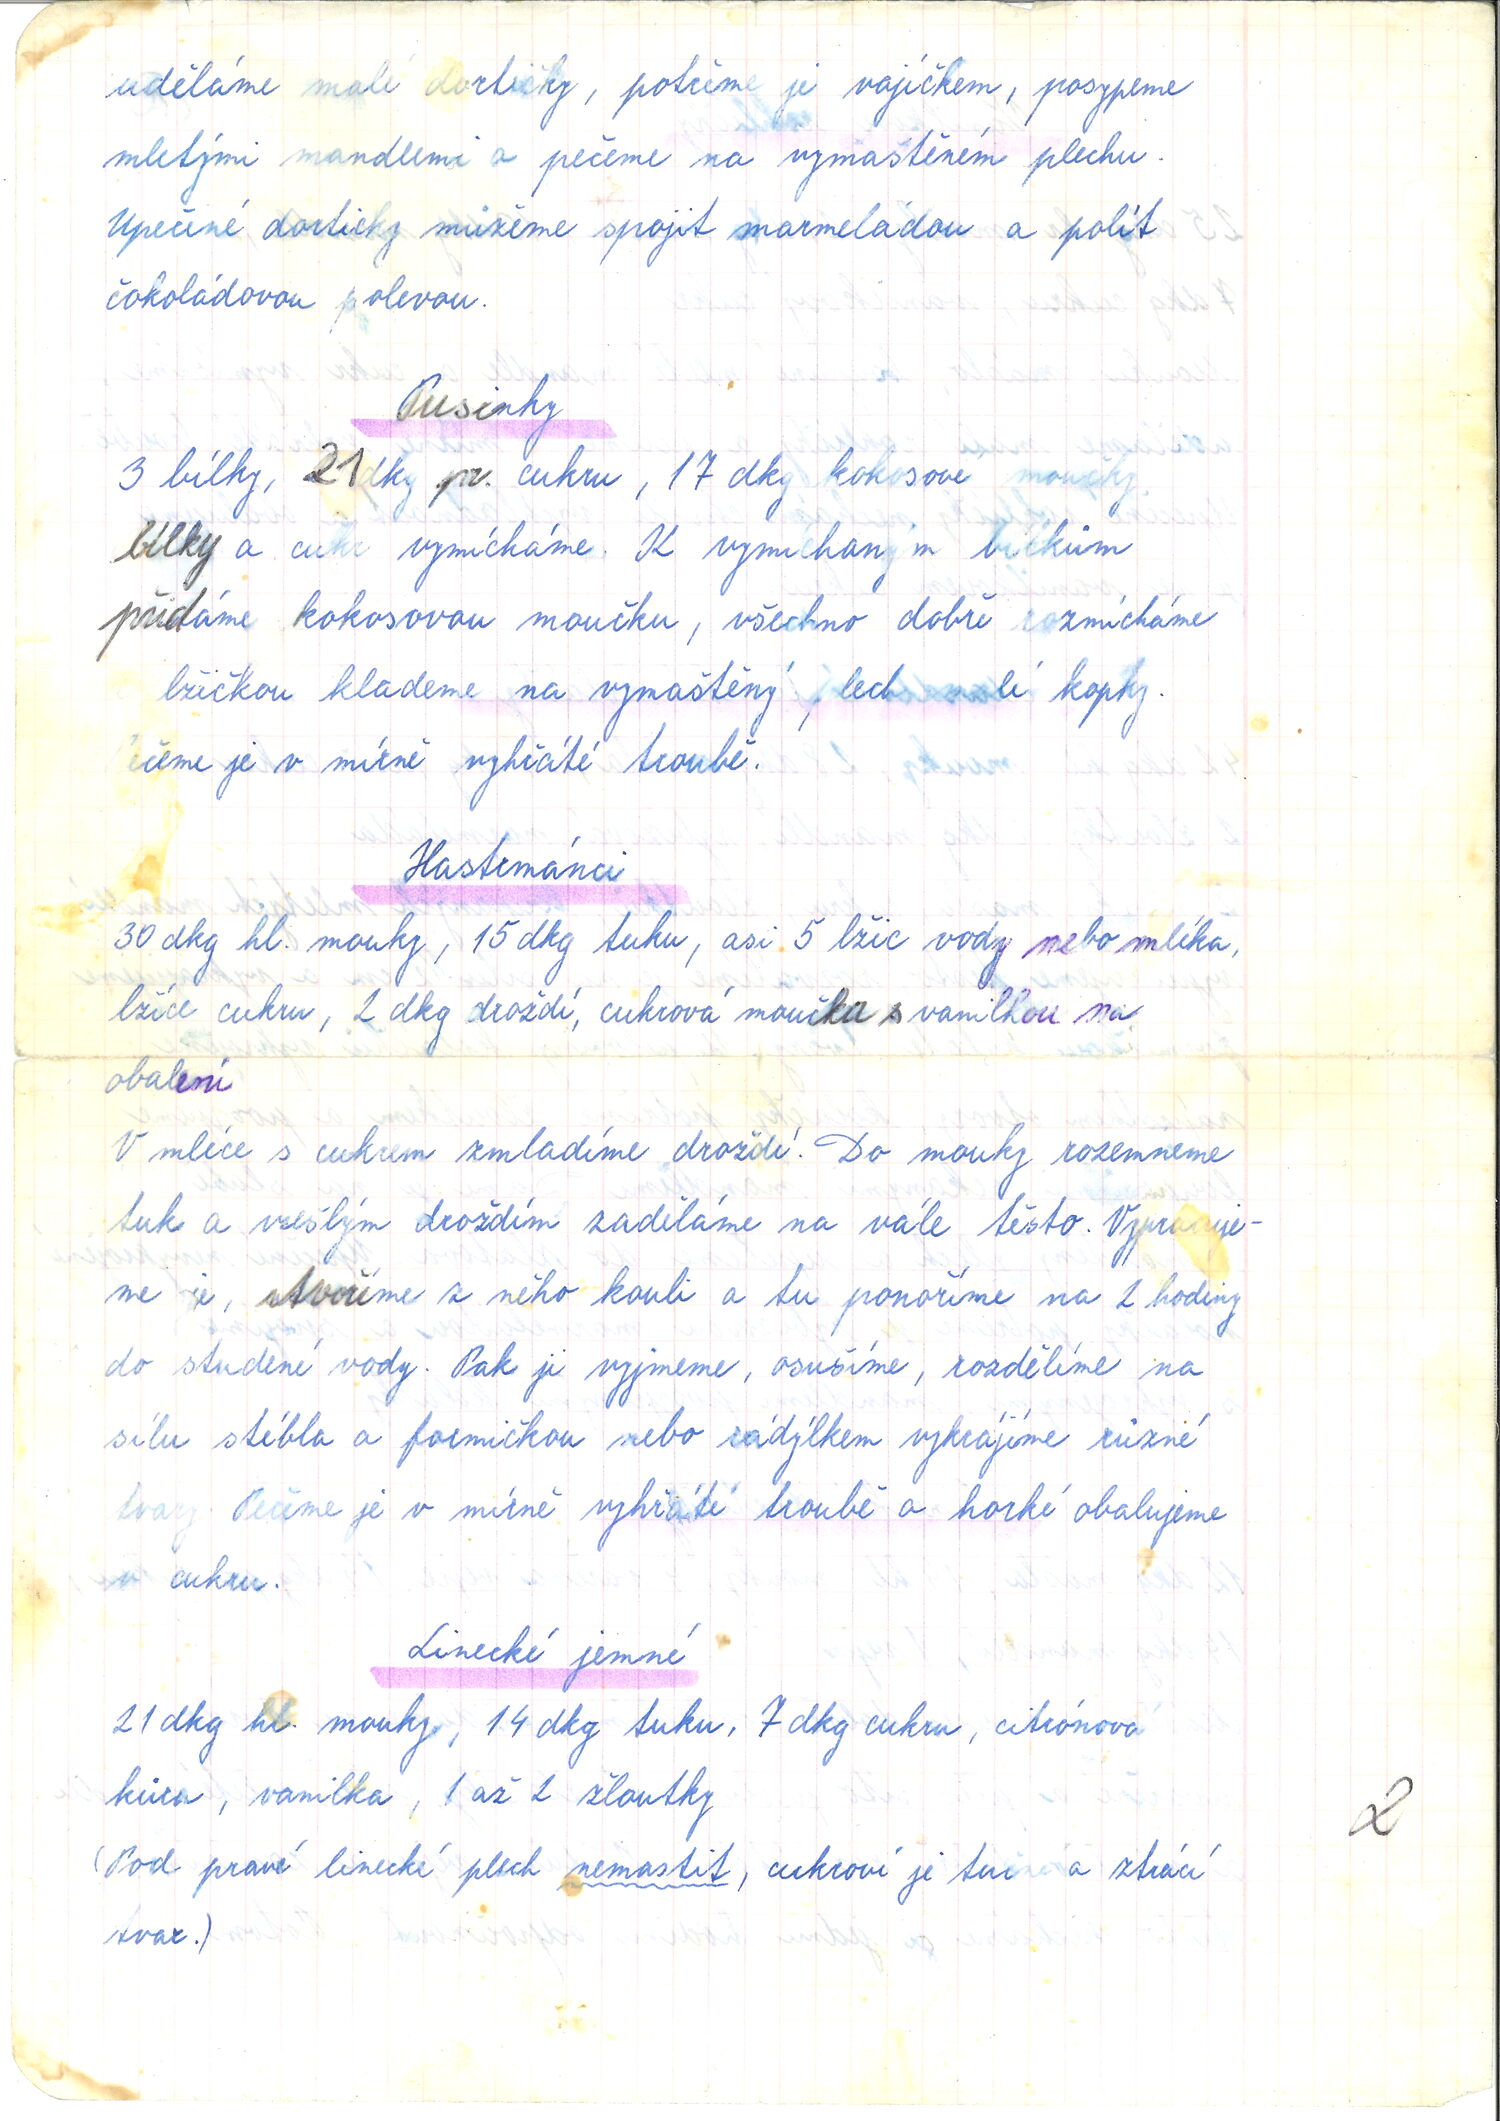 uděláme malé dortičky, potřeme je vajíčkem, posypeme
mletými mandlemi a pečeme na vymaštěném plechu.
Upečené dortičky můžeme spojit marmeládou a polít
čokoládovou polevou.
Pusinky
3 bílky, 21 dkg pr. cukru, 17 dkg kokosové moučky.
bílky a cukr vymícháme. K vymíchaným bílkům
přidáme kokosovou moučku, všechno dobře rozmícháme
lžičkou klademe na vymaštěný plech malé kopky.
Pečeme je v mírně vyhřáté troubě.
Hastrmánci
30 dkg hl. mouky, 15 dkg tuku, asi 5 lžic vody nebo mléka,
lžíce cukru, 2 dkg droždí, cukrová moučka s vanilkou na
obalení
V mléce s cukrem zmladíme droždí. Do mouky rozemneme
tuk a vzešlým droždím zaděláme na vále těsto. Vypracuje-
me je, utvoříme z něho kouli a tu ponoříme na 2 hodiny
do studené vody. Pak ji vyjmeme, osušíme, rozdělíme na
sílu stébla a formičkou nebo rádýlkem vykrájíme různé
tvary. Pečeme je v mírně vyhřáté troubě a horké obalujeme
v cukru.
Linecké jemné
21 dkg hl. mouky, 14 dkg tuku, 7 dkg cukru, citrónová
kůra, vanilka, 1 až 2 žloutky
(Pod pravé linecké plech nemastit, cukroví je a ztrácí
tvar.)
2